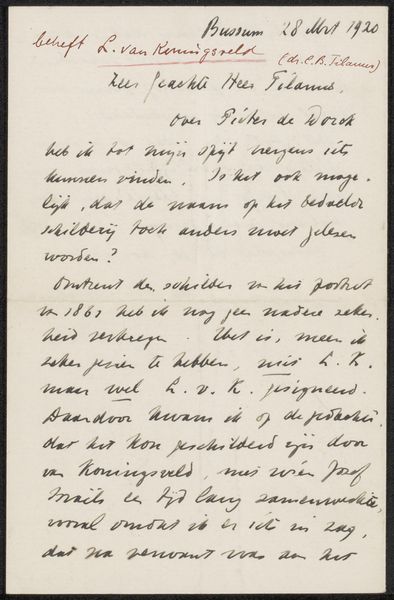 Bussum 28 Mrt 1920
betreft L. van Koningsveld
(dr. C.B. Tilanus)
Zeer Geachte Heer Tilanus,
Over Pieter de Dorck
heb ik tot mijn spijt nergens iets
kunnen vinden. Is het ook moge-
lijk, dat de naam op het bedoelde
schilderij toch anders moet gelezen
worden?
Omtrent den schilder van het portret
van 1863 heb ik nog geen nadere zeker-
heid verkregen. Het is, meen ik
zeker gezien te hebben, niet L. K.
maar wel L. v. K. gesigneerd.
Daardoor kwam ik op de gedachte,
dat het kon geschilderd zijn door
van Koningsveld, met wien Jozef
Israëls een tijd lang samenwerkte,
vooral omdat ik er iets in zag,
dat na verwant was aan het